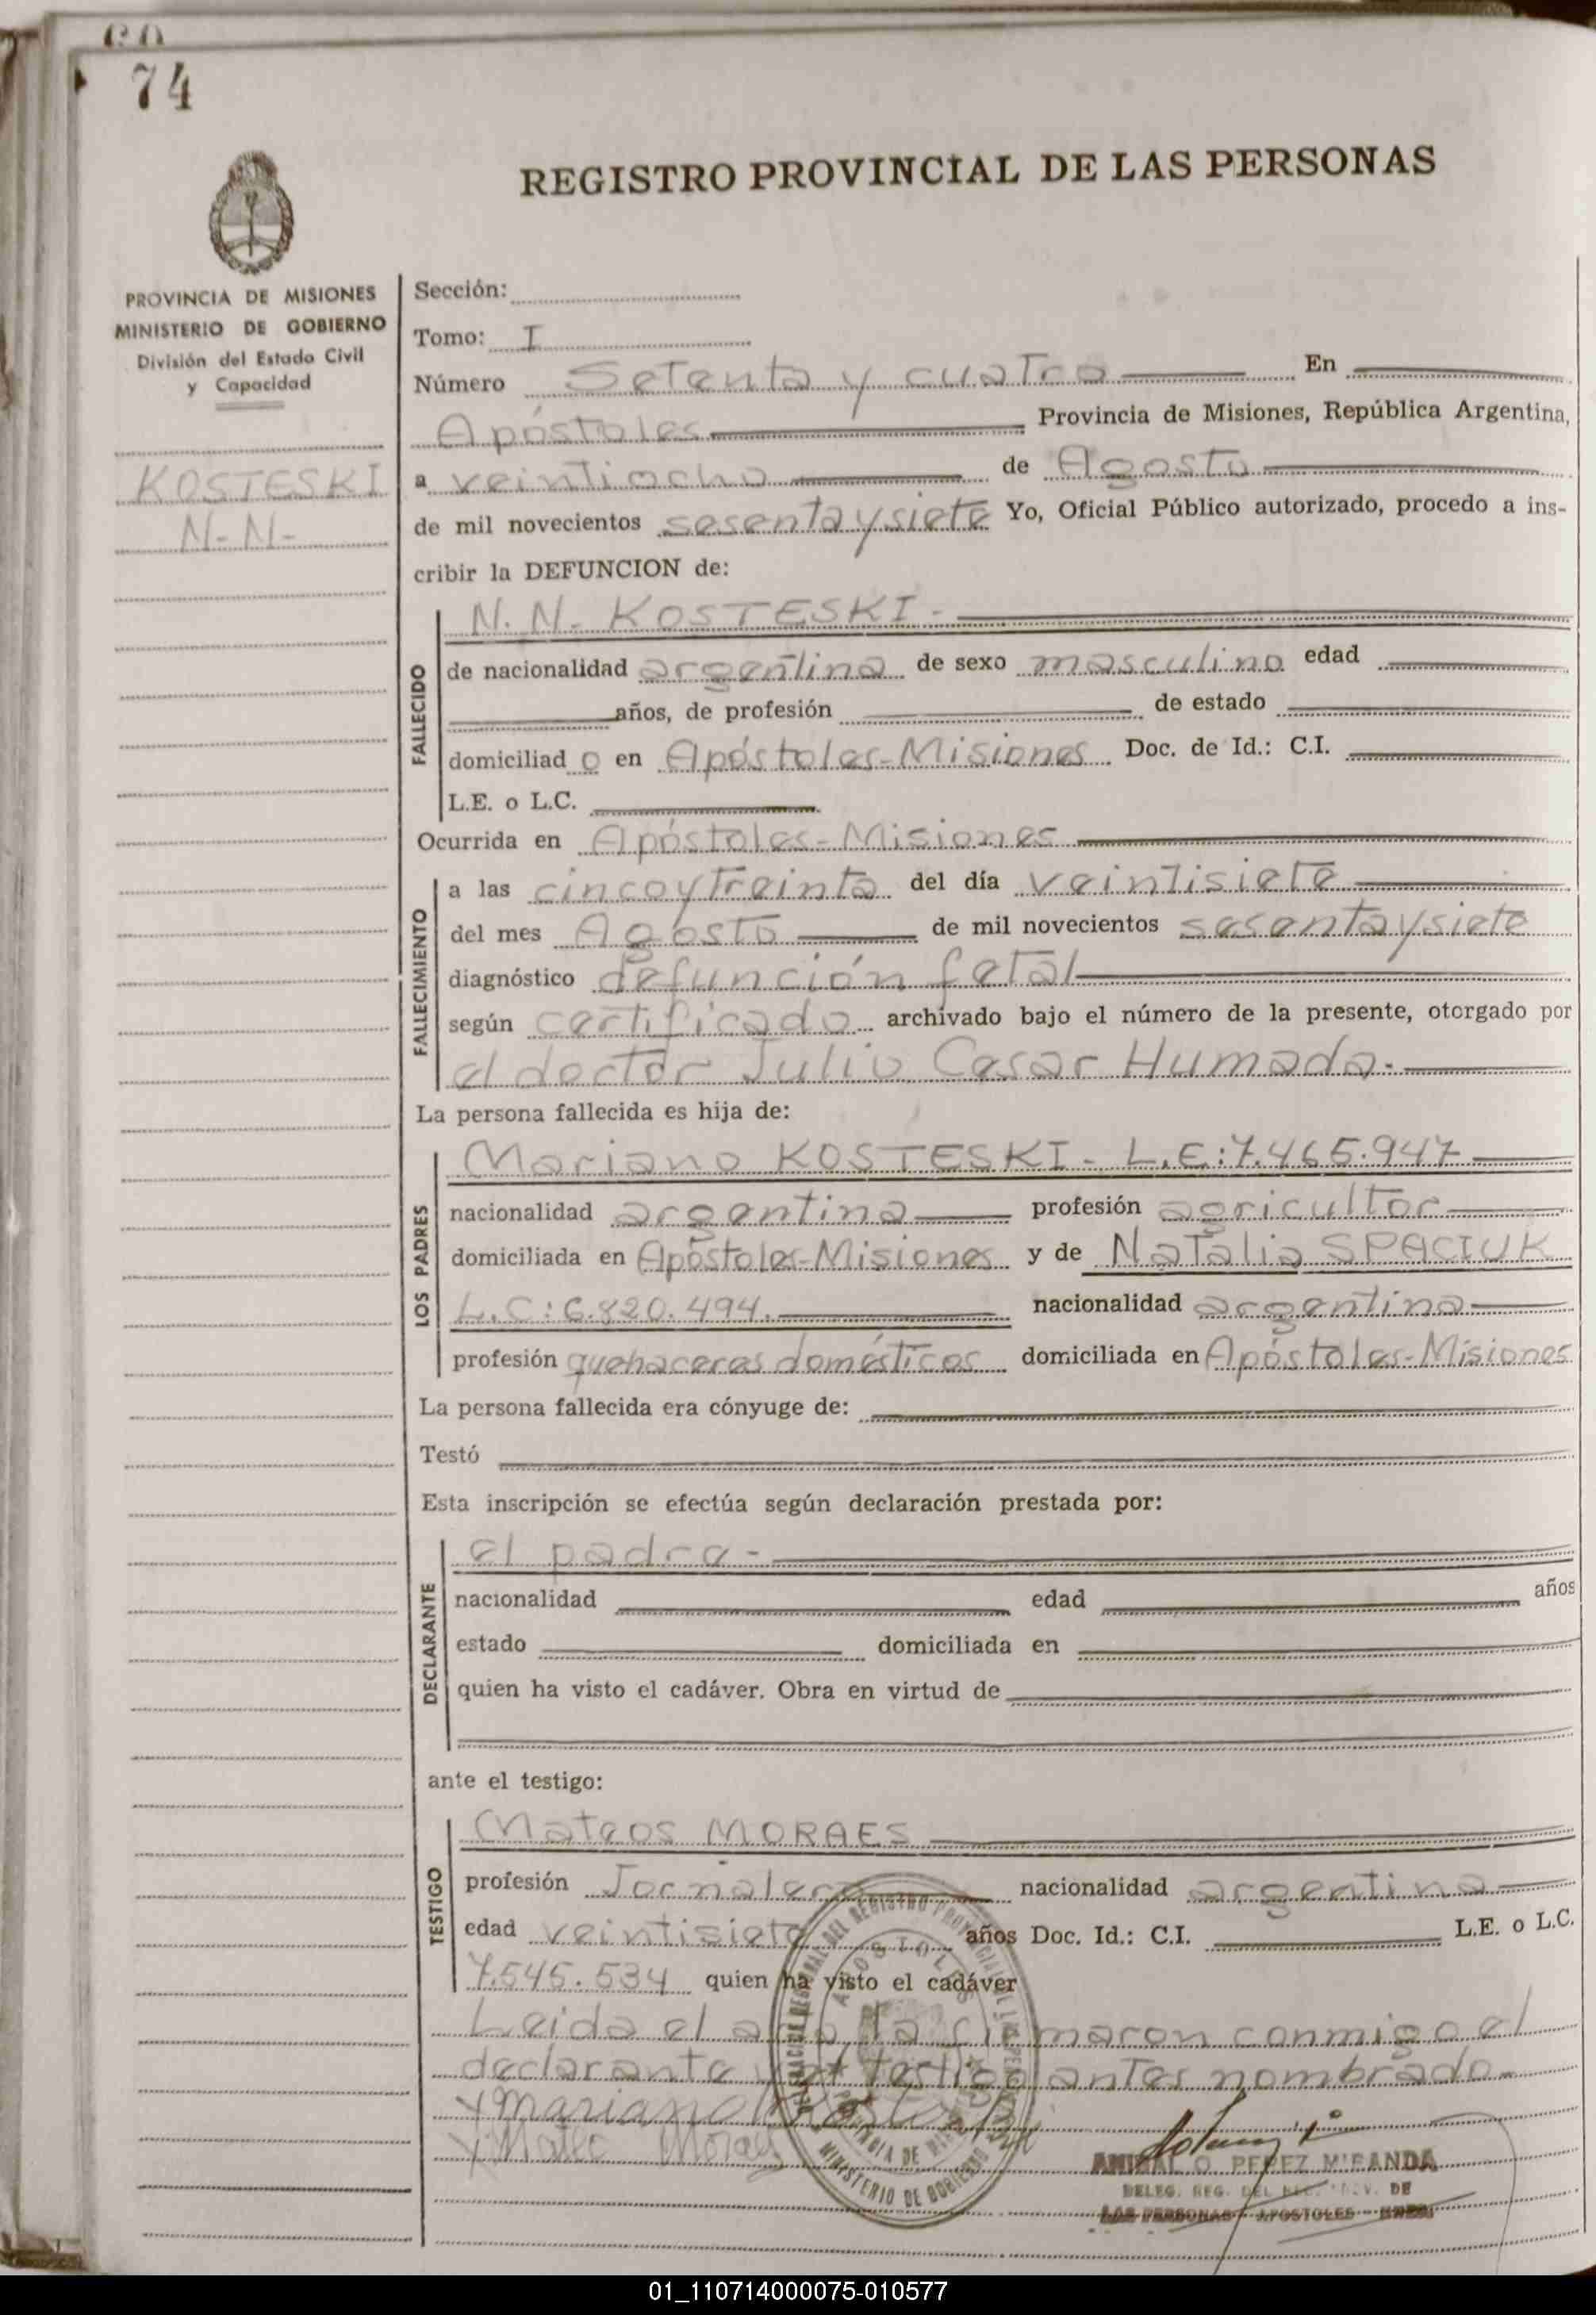 74
REGISTRO PROVINCIAL DE LAS PERSONAS
PROVINCIA DE MISIONES
MINISTERIO DE GOBIERNO
División del Estado Civil
y Capacidad
KOSTESKI
N-N-
Sección:
Tomo: I
Número Setenta y cuatro En
Apóstoles Provincia de Misiones, República Argentina,
a veintiocho de Agosto
de mil novecientos sesentaysiete Yo, Oficial Público autorizado, procedo a ins-
cribir la DEFUNCION de:
N. N. KOSTESKI-
FALLECIDO
de nacionalidad argentina de sexo masculino edad
años, de profesión de estado
domiciliad o en Apóstoles-Misiones Doc. de Id.: C.I.
L.E. o L.C.
Ocurrida en Apóstoles-Misiones
FALLECIMIENTO
a las cincoytreinta del día veintisiete
del mes Agosto de mil novecientos sesentaysiete
diagnóstico defunción fetal
según certificado archivado bajo el número de la presente, otorgado por
el doctor Julio Cesar Humada.
La persona fallecida es hija de:
LOS PADRES
Mariano KOSTESKI- L.E:7.465.947
nacionalidad argentina profesión agricultor
domiciliada en Apóstoles-Misiones y de Natalia SPACIUK
L.C:6.820.494. nacionalidad argentina
profesión quehaceres domésticos domiciliada en Apóstoles-Misiones
La persona fallecida era cónyuge de:
Testó
Esta inscripción se efectúa según declaración prestada por:
DECLARANTE
el padre-
nacionalidad edad años
estado domiciliada en
quien ha visto el cadáver. Obra en virtud de
ante el testigo:
TESTIGO
Mateos MORAES
profesión Jornalero nacionalidad argentina
edad veintisiete años Doc. Id.: C.I. L.E. o L.C.
7.545.534 quien ha visto el cadáver
Leida el acta la firmaron conmigo el
declarante y el testigo antes nombrado.
Mariano Kosteski
ANIBAL O. PEREZ MIRANDA
DELEG. REG. DEL DE
LAS PERSONAS - APOSTOLES
APOSTOLES
MINISTERIO DE GOBIERNO
01_110714000075-010577